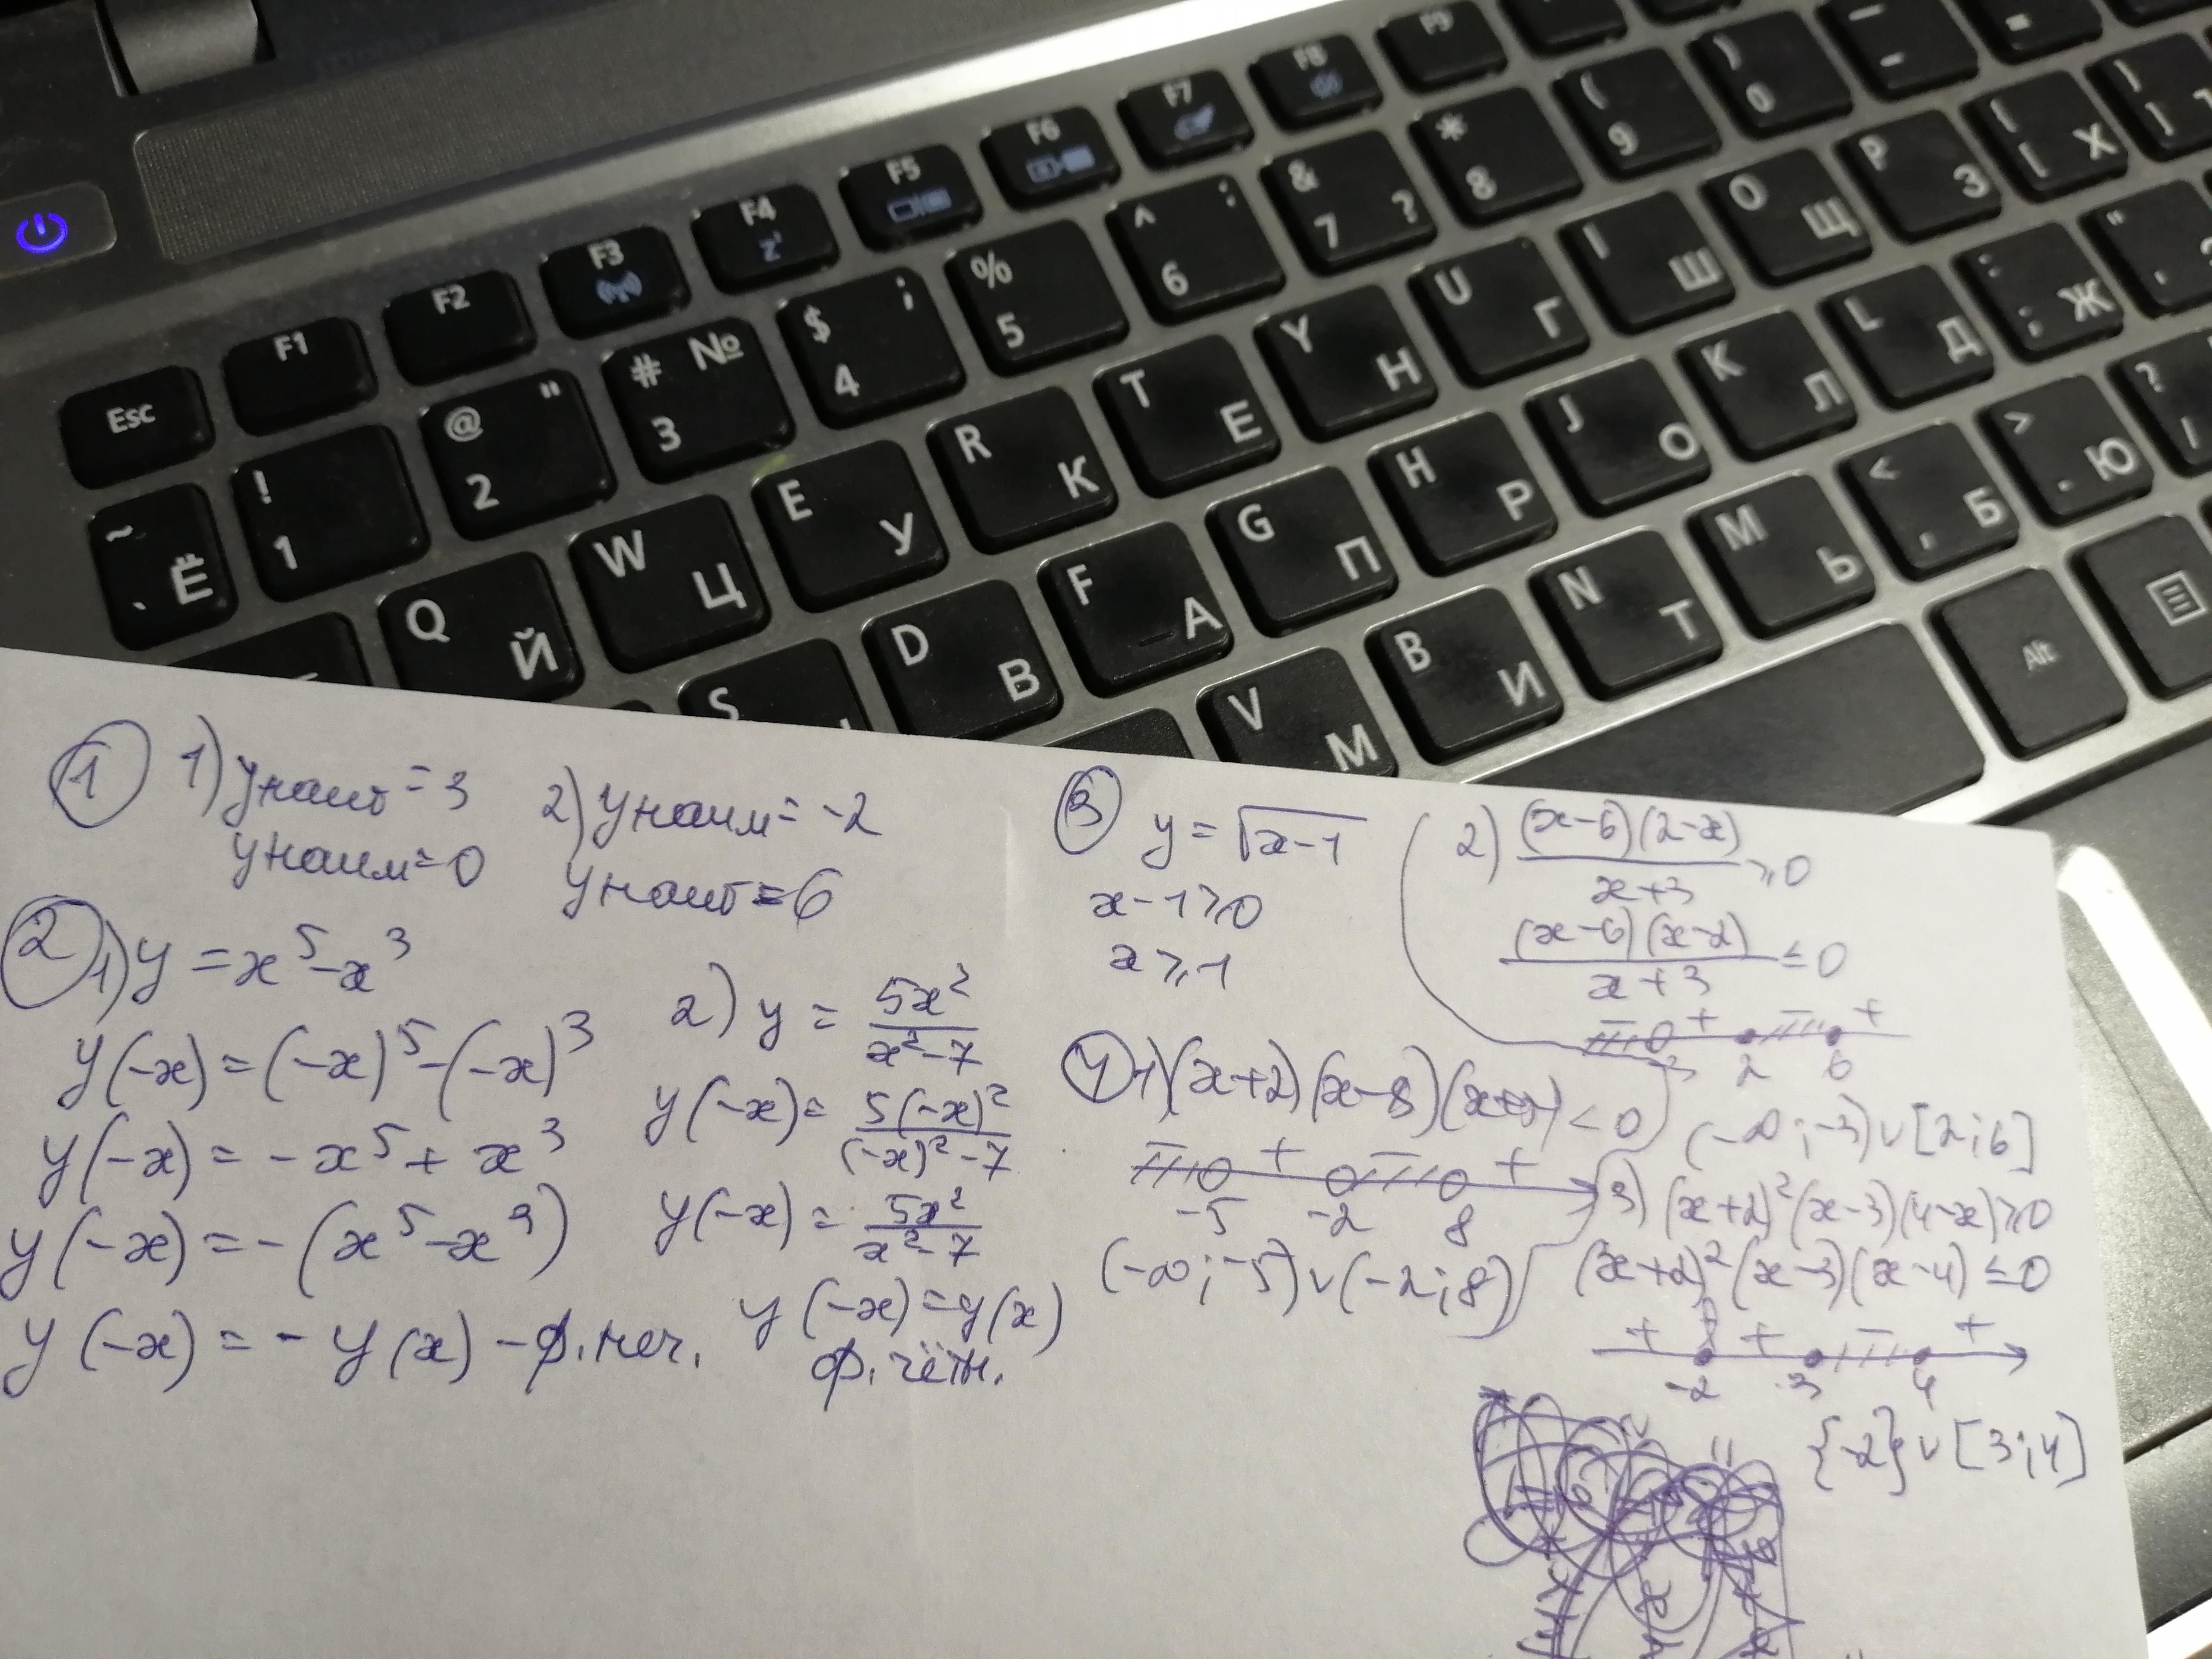 Esc F1 F2 F3 F4 F5 F6 F7 F8 F9
~ ` Ё ! 1 @ " 2 # № 3 $ ; 4 % 5 ^ : 6 & ? 7 * 8 ( 9 ) 0
Q Й W Ц E У R К T Е Y Н U Г I Ш O Щ P З [ Х
S D В F А G П H Р J О K Л L Д ; Ж
V М B И N Т M Ь < , Б > . Ю ?
Alt
① 1) yнаиб = 3
yнаим = 0
2) yнаим = -2
yнаиб = 6
② 1) y = x⁵ - x³
y(-x) = (-x)⁵ - (-x)³
y(-x) = -x⁵ + x³
y(-x) = -(x⁵ - x³)
y(-x) = -y(x) - ф. неч.
2) y = 5x²/(x² - 7)
y(-x) = 5(-x)²/((-x)² - 7)
y(-x) = 5x²/(x² - 7)
y(-x) = y(x)
ф. чётн.
③ y = √(x-1)
x - 1 ≥ 0
x ≥ 1
④ 1) (x+2)(x-8)(x+5) < 0
- + - +
-5 -2 8
(-∞; -5) ∪ (-2; 8)
2) (x-6)(2-x)/(x+3) ≥ 0
(x-6)(x-2)/(x+3) ≤ 0
- + - +
-3 2 6
(-∞; -3) ∪ [2; 6]
3) (x+2)²(x-3)(4-x) ≥ 0
(x+2)²(x-3)(x-4) ≤ 0
+ + - +
-2 3 4
{-2} ∪ [3; 4]